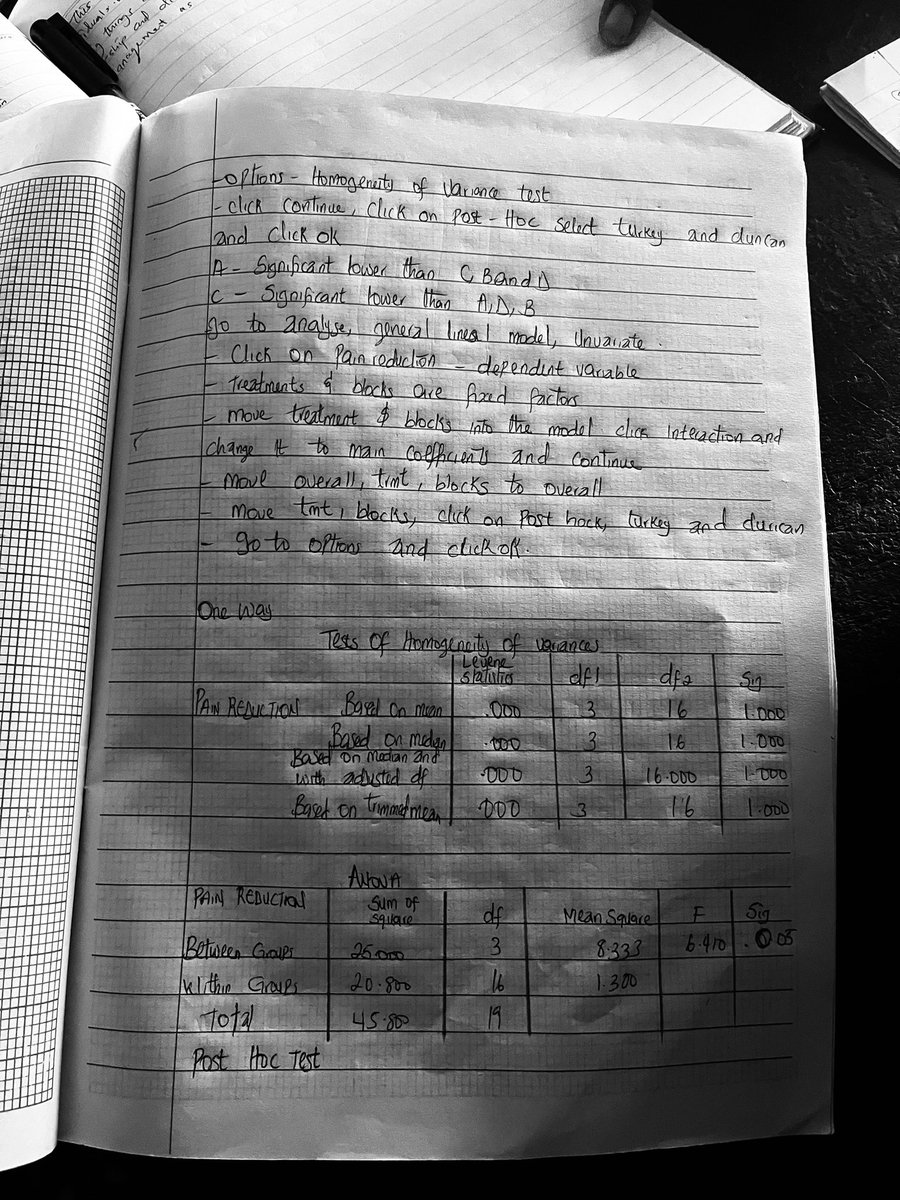 This
things
management as
- Options - Homogeneity of Variance test
- click continue, click on Post-Hoc select turkey and duncan
and click ok
A - Significant lower than C B and D
C - Significant lower than A, D, B
go to analyse, general lineal model, Univariate.
- Click on Pain reduction - dependent variable
- treatments & blocks are fixed factors
- move treatment & blocks into the model click Interaction and
change it to main coefficients and continue
- move overall, trmt, blocks to overall
- move tmt, blocks, click on Post hock, turkey and duncan
- go to options and click ok.
One Way
Tests Of Homogeneity of variances
Levene statistio df1 df2 Sig
PAIN REDUCTION Based on mean .000 3 16 1.000
Based on median .000 3 16 1.000
Based on median and with adjusted df .000 3 16.000 1.000
Based on trimmed mean .000 3 16 1.000
ANOVA
PAIN REDUCTION Sum of square df Mean Square F Sig
Between Groups 25.000 3 8.333 6.410 .005
Within Groups 20.800 16 1.300
Total 45.800 19
Post Hoc Test